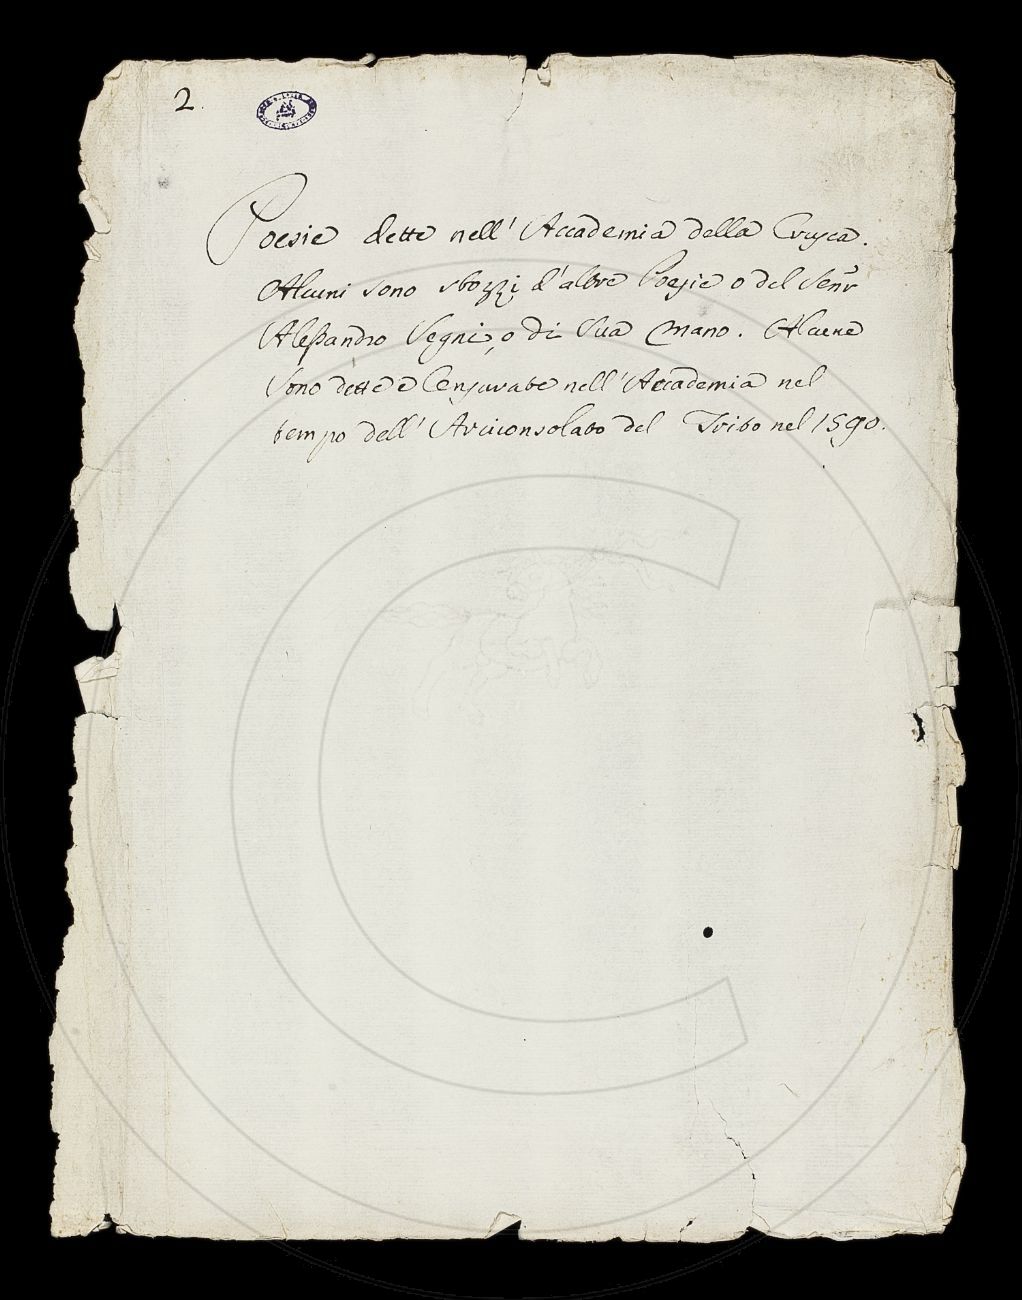 2.
Poesie dette nell'Accademia della Crusca.
Alcuni sono sbozzi d'altre Poesie o del Sen.r
Alessandro Segni, o di Sua mano. Alcune
Sono dette e Censurate nell'Accademia nel
tempo dell'Arciconsolato del Trito nel 1590.